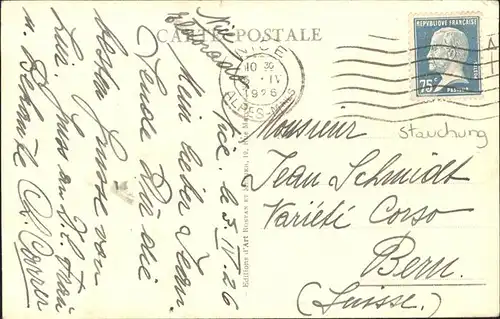 CARTE POSTALE
NICE
10 30
5 · IV
1926
ALPES-MMES
REPUBLIQUE FRANÇAISE
75c
POSTES
PASTEUR
Stauchung
Nice
Nice, le 5 IV. 26
Mein lieber Jean.
Sende Dir die
besten Grüsse von
hier. Gruss an
u. Bekannte
Editions d'Art ROSTAN et
Monsieur
Jean Schmidt
Variété Corso
Bern.
(Suisse.)